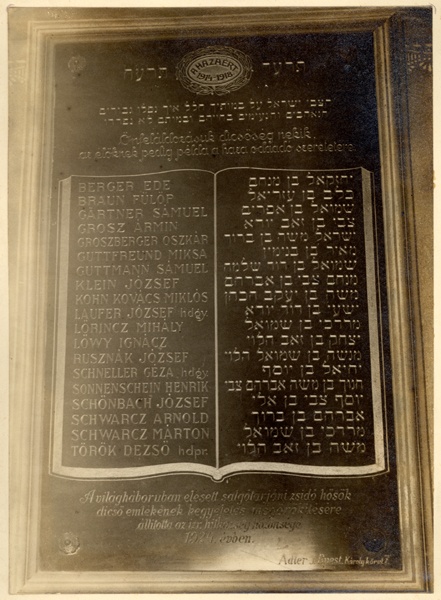 תרעד
A HAZÁÉRT
1914-1918
תרעח
הצבי ישראל על במותיך חלל איך נפלו גבורים
הנאהבים והנעימים בחייהם ובמותם לא נפרדו
Önfeláldozásuk dicsőség nekik,
az élőknek pedig példa a haza odaadó szeretetére.
BERGER EDE
BRAUN FÜLÖP
GÄRTNER SÁMUEL
GROSZ ÁRMIN
GROSZBERGER OSZKÁR
GUTTFREUND MIKSA
GUTTMANN SÁMUEL
KLEIN JÓZSEF
KOHN KOVÁCS MIKLÓS
LAUFER JÓZSEF hdgy.
LŐRINCZ MIHÁLY
LÖWY IGNÁCZ
RUSZNÁK JÓZSEF
SCHNELLER GÉZA hdgy.
SONNENSCHEIN HENRIK
SCHÖNBACH JÓZSEF
SCHWARCZ ARNOLD
SCHWARCZ MÁRTON
TÖRÖK DEZSŐ hdpr.
יחזקאל בן מנחם
כלב בן עזריאל
שמואל בן אפרים
צבי בן זאב
ישראל משה בן ברוך
מאיר בן בנימין
שמואל בן דוד שלמה
מנחם צבי בן אברהם
משה בן יעקב הכהן
ישעי בן דוד
מרדכי בן שמואל
יצחק בן זאב הלוי
משה בן שמואל הלוי
יחיאל בן יוסף
חנוך בן משה אברהם צבי
יוסף צבי בן אלי
אברהם בן ברוך
מרדכי בן שמואל
משה בן זאב הלוי
A világháboruban elesett salgótarjáni zsidó hősök
dicső emlékének kegyeletes megörökítésére
állította az izr. hitközség közönsége
évben.
Adler Bpest, Király körut 7.